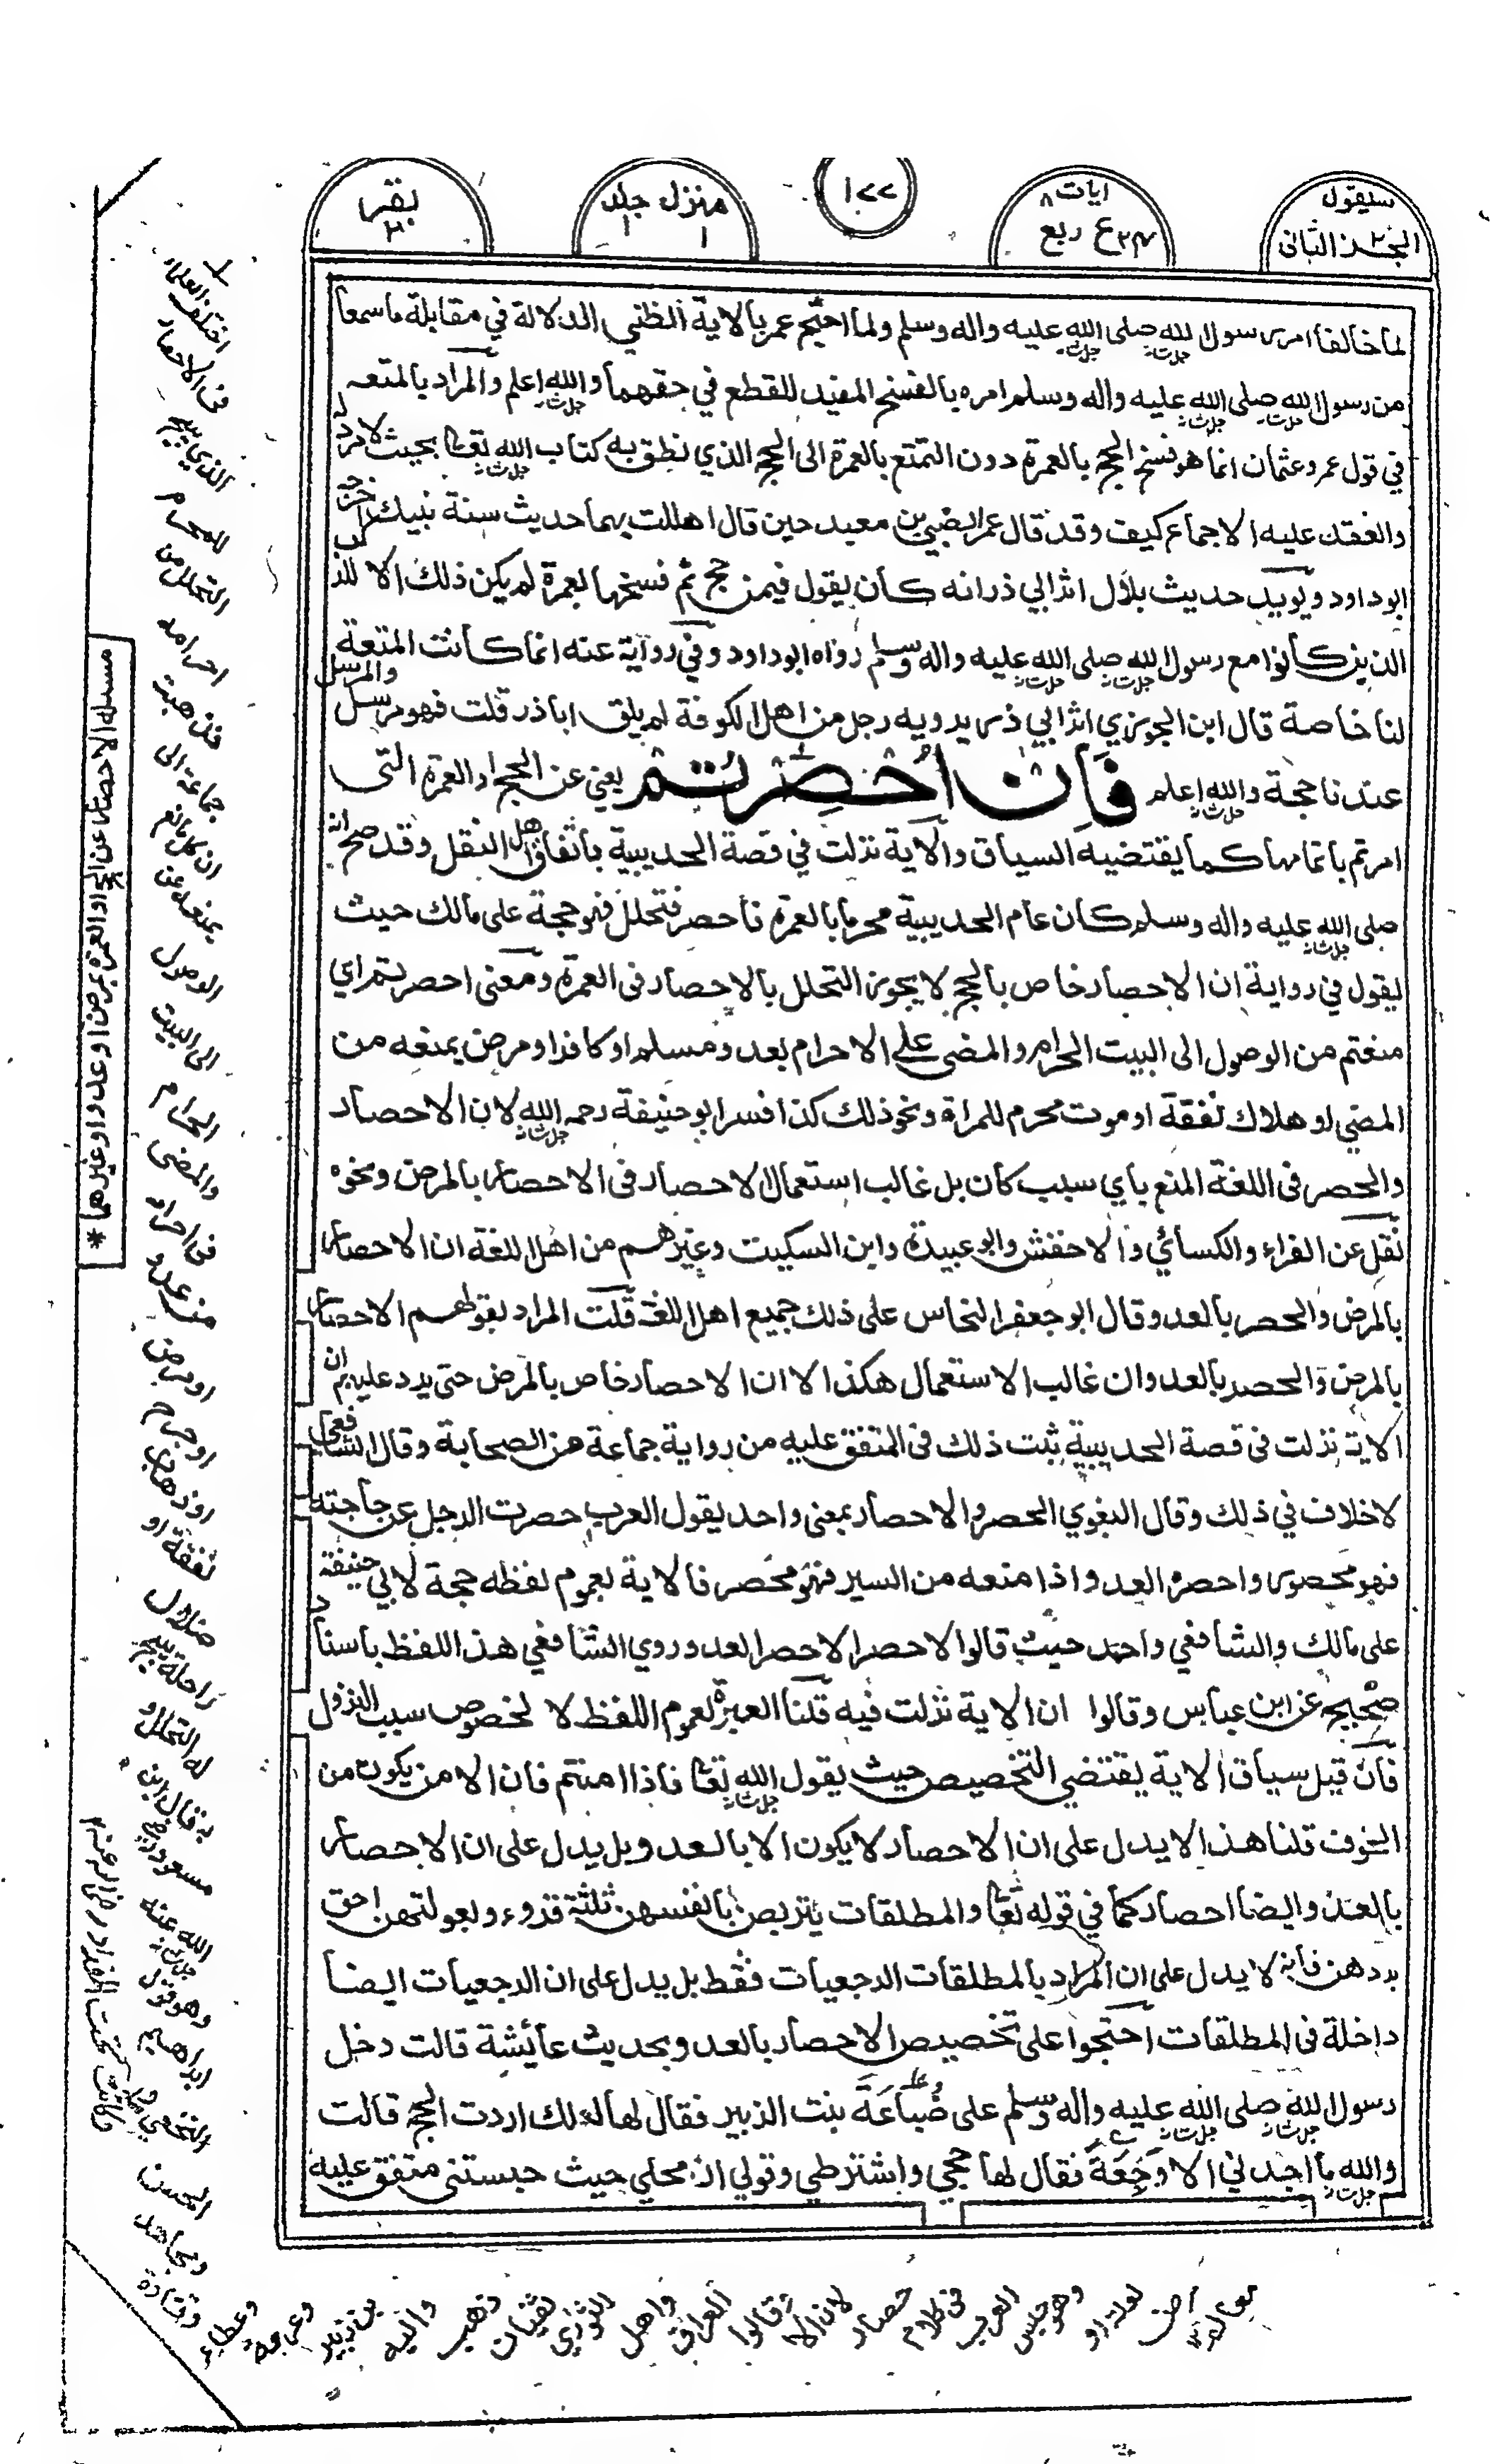 سيقول
الجزء الثاني
ايات ٨
ع ربع
منزل جلد
١ ١
بقرا
٢
لما خالفا امر رسول الله صلى الله عليه واله وسلم ولما احتج عمر بالاية الظني الدلالة في مقابلة ما سمعا
من رسول الله صلى الله عليه واله وسلم امره بالفسخ المفيد للقطع في حقهما والله اعلم والمراد بالمتعه
في قول عمر وعثمان انما هو فسخ الحج بالعمرة دون التمتع بالعمرة الى الحج الذي نطق به كتاب الله تعا بحيث لا مرد
وانعقد عليه الاجماع كيف وقد قال عمر لضبي بن معبد حين قال اهللت بهما حديث سنة نبيك اخرجه
ابو داود ويويد حديث بلال اثر ابي ذر انه كان يقول فيمن حج ثم فسخها بعمرة لم يكن ذلك الا للذ
الذين كانوا مع رسول الله صلى الله عليه واله وسلم رواه ابو داود وفي رواية عنه انما كانت المتعة
لنا خاصة قال ابن الجوزي اثر ابي ذر يرويه رجل من اهل الكوفة لم يلق اباذر قلت فهو مرسل والمرسل
عندنا حجة والله اعلم فَاِنْ اُحْصِرْتُمْ يعني عن الحج او العمرة التى
امرتم باتمامها كما يقتضيه السياق والاية نزلت في قصة الحديبية باتفاق اهل النقل وقد صح انه
صلى الله عليه واله وسلم كان عام الحديبية محرما بالعمرة فاحصر فتحلل فهو حجة على مالك حيث
يقول في رواية ان الاحصار خاص بالحج لا يجوز التحلل بالاحصار فى العمرة ومعنى احصرتم اي
منعتم من الوصول الى البيت الحرام والمضى على الاحرام بعدو مسلم او كافر او مرض يمنعه من
المضي او هلاك نفقة او موت محرم للمراة ونحو ذلك كذا فسر ابو حنيفة رحمه الله لان الاحصار
والحصر فى اللغة المنع باي سبب كان بل غالب استعمال الاحصار فى الاحصار بالمرض ونحوه
نقل عن الفراء والكسائي والاخفش وابو عبيدة وابن السكيت وغيرهم من اهل اللغة ان الاحصار
بالمرض والحصر بالعدو وقال ابو جعفر النحاس على ذلك جميع اهل اللغة قلت المراد بقولهم الاحصار
بالمرض والحصر بالعدو ان غالب الاستعمال هكذا لا ان الاحصار خاص بالمرض حتى يرد عليهم ان
الاية نزلت فى قصة الحديبية ثبت ذلك فى المتفق عليه من رواية جماعة من الصحابة وقال الشافعي
لا خلاف في ذلك وقال البغوي الحصر والاحصار بمعنى واحد يقول العرب حصرت الرجل عن حاجته
فهو محصور واحصره العدو اذا منعه من السير فهو محصر فالاية بعموم لفظه حجة لابي حنيفة
على مالك والشافعي واحمد حيث قالوا لا حصر الا حصر العدو وروي الشافعي هذا اللفظ باسنا
صحيح عن ابن عباس وقالوا ان الاية نزلت فيه قلنا العبرة لعموم اللفظ لا لخصوص سبب النزول
فان قيل سياق الاية يقتضي التخصيص حيث يقول الله تعا فاذا امنتم فان الامن يكون من
الخوف قلنا هذا لا يدل على ان الاحصار لا يكون الا بالعدو بل يدل على ان الاحصار
بالعدو ايضا احصار كما في قوله تعا والمطلقات يتربصن بانفسهن ثلثة قروء وبعولتهن احق
بردهن فانه لا يدل على ان المراد بالمطلقات الرجعيات فقط بل يدل على ان الرجعيات ايضا
داخلة فى المطلقات احتجوا على تخصيص الاحصار بالعدو بحديث عائشة قالت دخل
رسول الله صلى الله عليه واله وسلم على ضباعة بنت الزبير فقال لها لعلك اردت الحج قالت
والله ما اجدني الا وجعة فقال لها حجي واشترطي وقولي ان محلي حيث حبستنى متفق عليه
مسئلة الاحصار عن الحج او العمرة بمرض او عدو او غيرهما *
اختلف العلماء
فى الاحصار
الذي يبيح
للمحرم
التحلل من
احرامه
فذهبت
جماعة الى
ان كل مانع
يمنعه عن
الوصول
الى البيت
الحرام
والمضى
فى احرامه
من عدو
او مرض
او جرح
او ذهاب
نفقة او
ضلال
راحلة يبيح
له التحلل و
به قال ابن
مسعود رضي
الله عنه
وهو قول
ابراهيم
النخعي و
الحسن
ومجاهد
وقتادة
وعطاء
وعروة
بن زبير
واليه
ذهب
سفيان
الثوري
واهل
العراق
قالوا
لان الا
حصار
فى كلام
العرب
وهو حبس